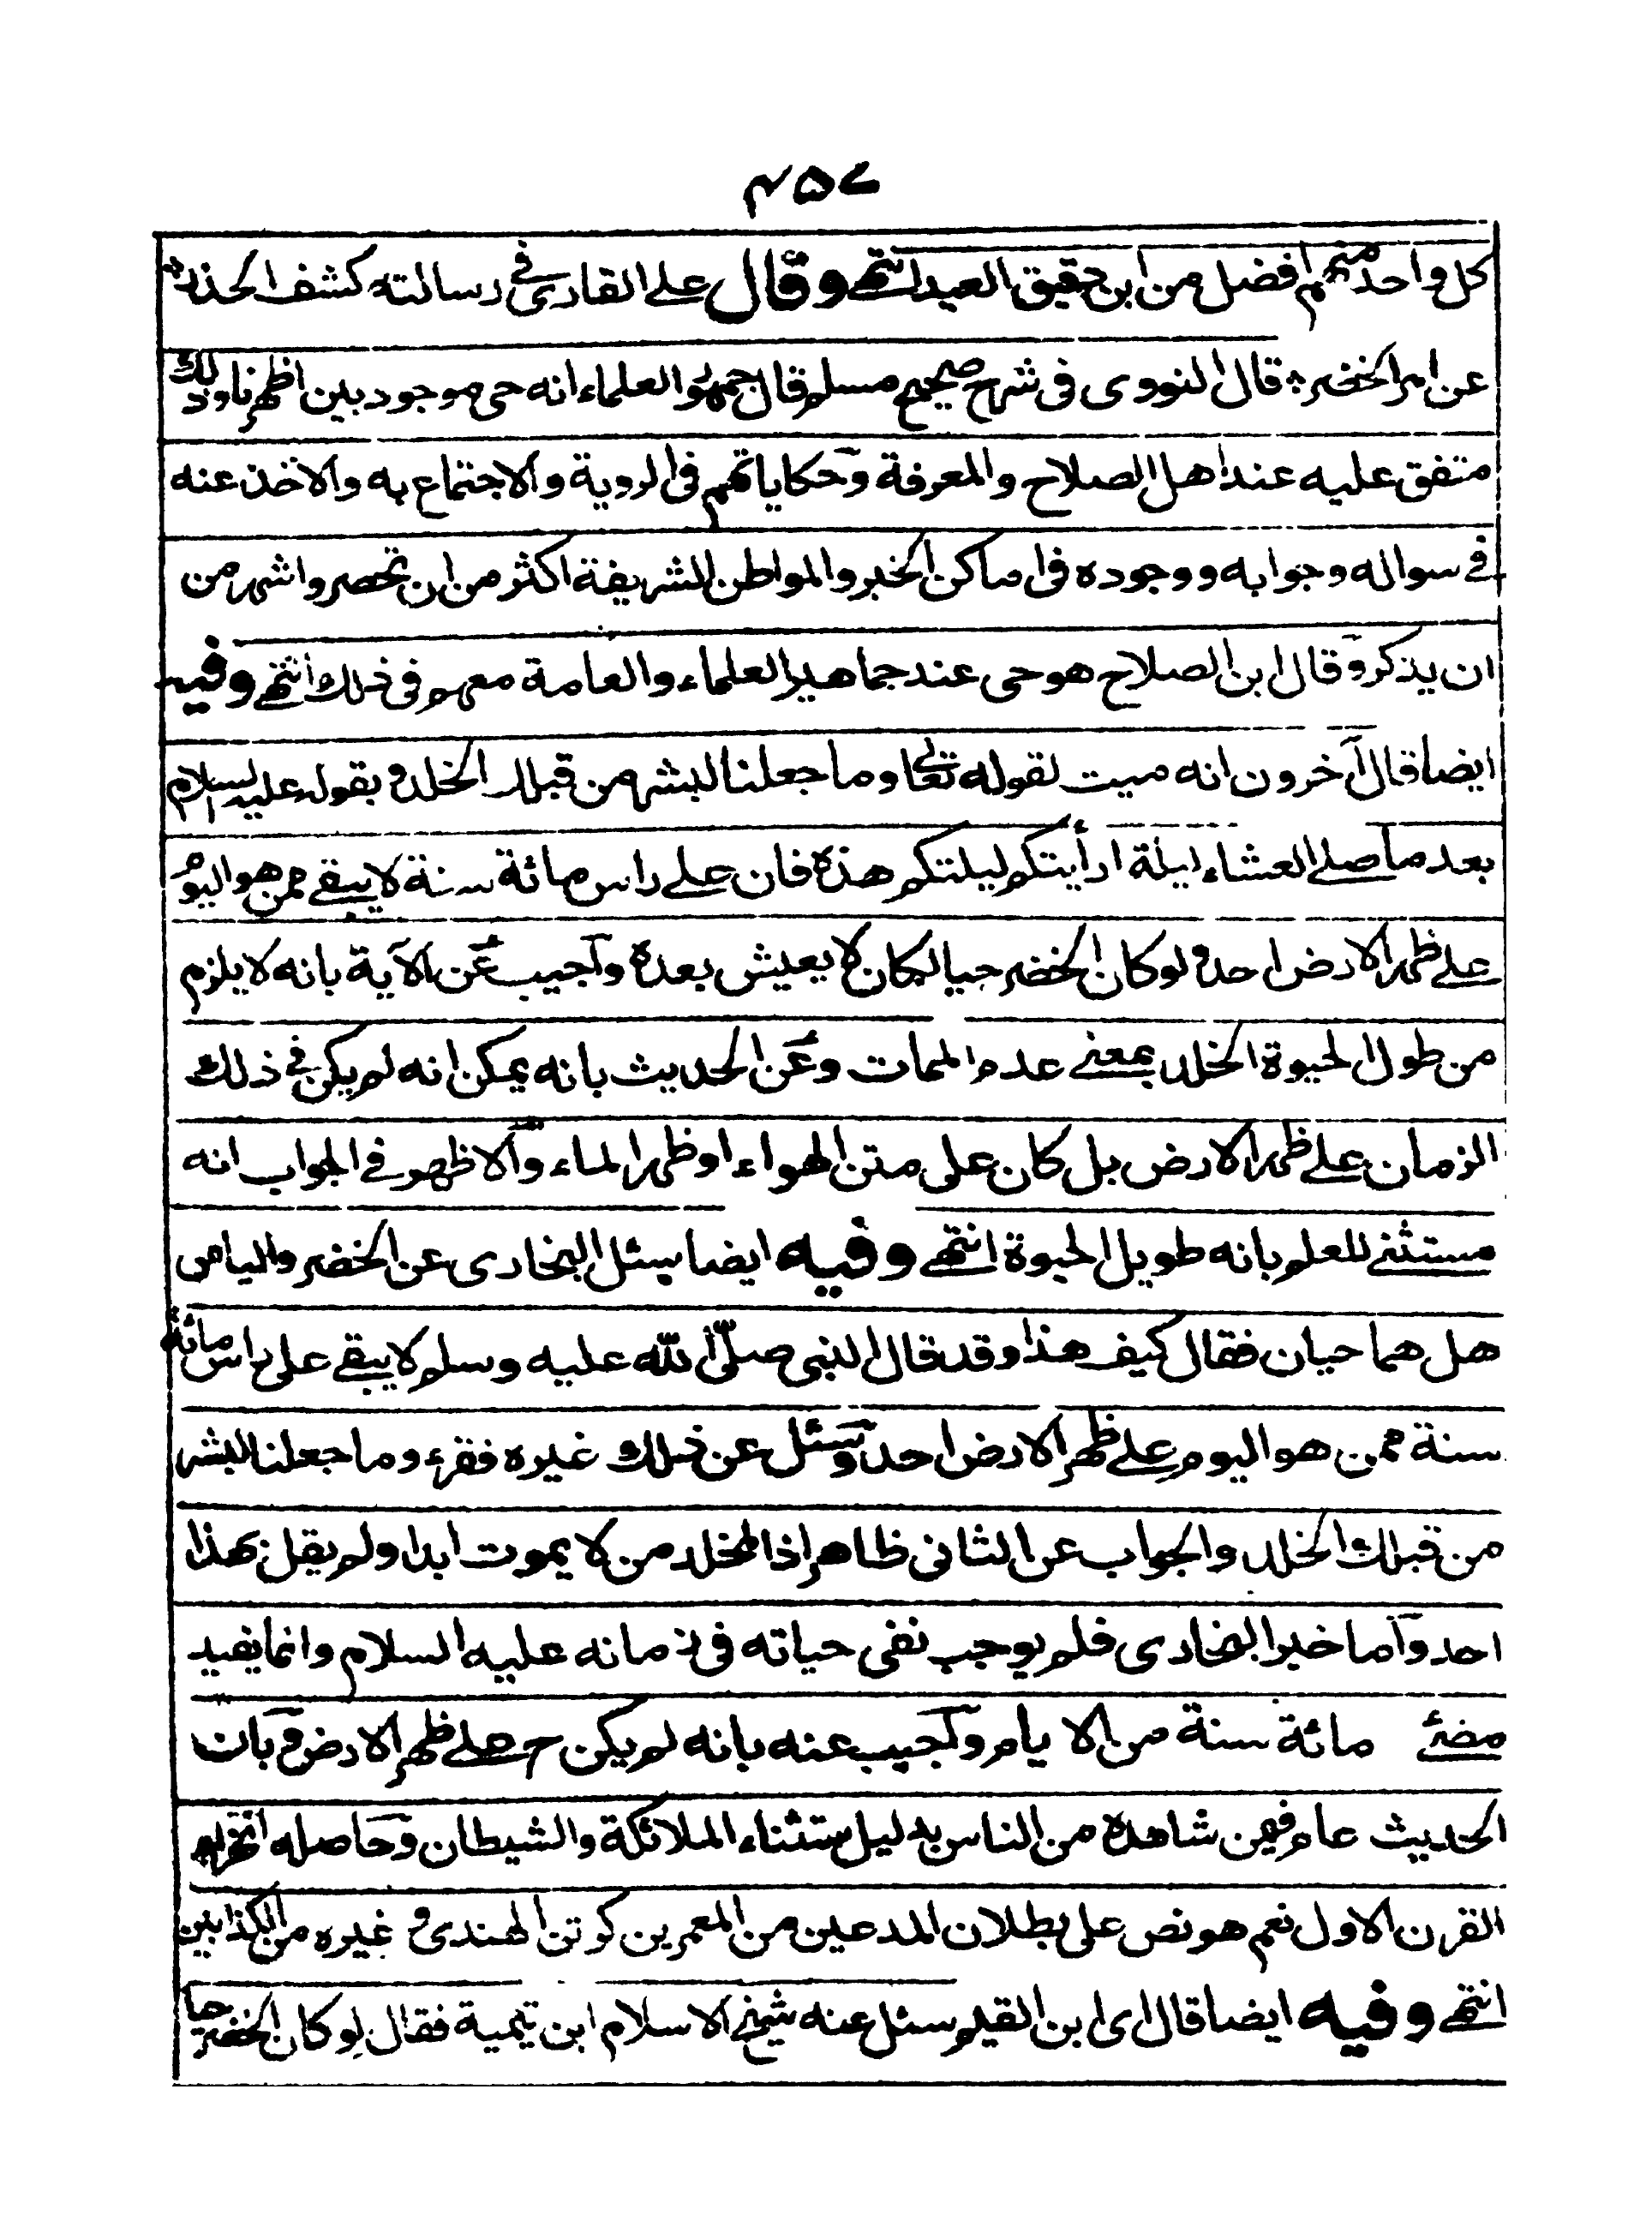 ۴۵۷
كل واحد منهم افضل من ابن دقيق العيد انتهى وقال على القارى فى رسالته كشف الحذر
عن امر الخضر قال النووى فى شرح صحيح مسلم قال جمهور العلماء انه حى موجود بين اظهرنا وذلك
متفق عليه عند اهل الصلاح والمعرفة وحكاياتهم فى الروية والاجتماع به والاخذ عنه
فى سواله وجوابه ووجوده فى اماكن الخير والمواطن الشريفة اكثر من ان تحصر واشهر من
ان يذكر وقال ابن الصلاح هو حى عند جماهير العلماء والعامة معهم فى ذلك انتهى وفيه
ايضا قال آخرون انه ميت لقوله تعالى وما جعلنا لبشر من قبلك الخلد و بقوله عليه السلام
بعد ما صلى العشاء ليلة ارأيتكم ليلتكم هذه فان على راس مائة سنة لا يبقى ممن هو اليوم
على ظهر الارض احد و لو كان الخضر حيا لكان لا يعيش بعده واجيب عن الآية بانه لا يلزم
من طول الحيوة الخلد بمعنى عدم الممات وعن الحديث بانه يمكن انه لم يكن فى ذلك
الزمان على ظهر الارض بل كان على متن الهواء او ظهر الماء والاظهر فى الجواب انه
مستثنى للعلم بانه طويل الحيوة انتهى وفيه ايضا سئل البخارى عن الخضر والياس
هل هما حيان فقال كيف هذا وقد قال النبى صلى الله عليه وسلم لا يبقى على راس مائة
سنة ممن هو اليوم على ظهر الارض احد وسئل عن ذلك غيره فقرء وما جعلنا لبشر
من قبلك الخلد والجواب عن الثانى ظاهر اذ المخلد من لا يموت ابدا ولم يقل بهذا
احد واما خبر البخارى فلم يوجب نفى حياته فى زمانه عليه السلام وانما يفيد
مضى مائة سنة من الايام واجيب عنه بانه لم يكن ح على ظهر الارض و بان
الحديث عام فيمن شاهده من الناس بدليل ستثناء الملائكة والشيطان وحاصله انخرام
القرن الاول نعم هو نص على بطلان المدعين من المعمرين كرتن الهندى و غيره من الكذابين
انتهى وفيه ايضا قال اى ابن القيم سئل عنه شيخ الاسلام ابن تيمية فقال لو كان الخضر حيا